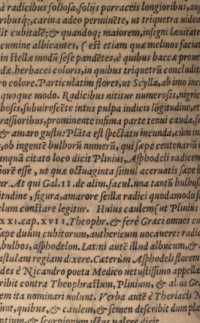 à radicibus foliosa, foliis porraceis longioribus, an
ibusq; carina adeo prominẽte, ut triquetra uideã
it cubitalẽ: & quandoq; maiorem, insigni læuitate
cumine albicantes, ( est etiam quæ melinos faciat
in stellæ modũ sese pandẽtes, è quibus baccæ proue
dæ, herbacei coloris, in quibus triquetrũ concludit
o colore. Particulatim flores, ut Scylla, ab imo par
quoque modo. Radicibus nititur numerosis, nigris
bosis, subuirescẽte intus pulpa indicis lõgitudine, et
rassioribus, prominente infima parte tenui cauda,
& amaro gustu: Plãta est spectatu iucunda, cùm
ob ingentẽ bulborũ numerũ, qui sæpe centenarũ
nquã citato loco dicit Plinius, Asphodeli radicem
iorẽ esse, ut quæ octuaginta simul aceruatis sæpe
r. At qui Gal. 11. de alim. facul. una tantũ bulbus
itudine, figura, amarore scillæ radici quodammodo
lam constare legitur. Huius caulem ut Plinius
xxi. cap. xvii. Theophr. & ferè Græci omnes
sæpe duûm cubitorum, anthericum uocauere: radicẽ
bulbos, asphodelon. Latini aut illud albucum, &
astulam regiam dixere. Cæterùm Asphodeli
des è Nicandro poeta Medico uetustissimo appella
ribit contra Theophrastum, Plinium, & alios
em ita nominari uolunt. Verba aut è Theriacis N
unt, quibus, & caulem, & semen describit dum
entium, & scorpionum